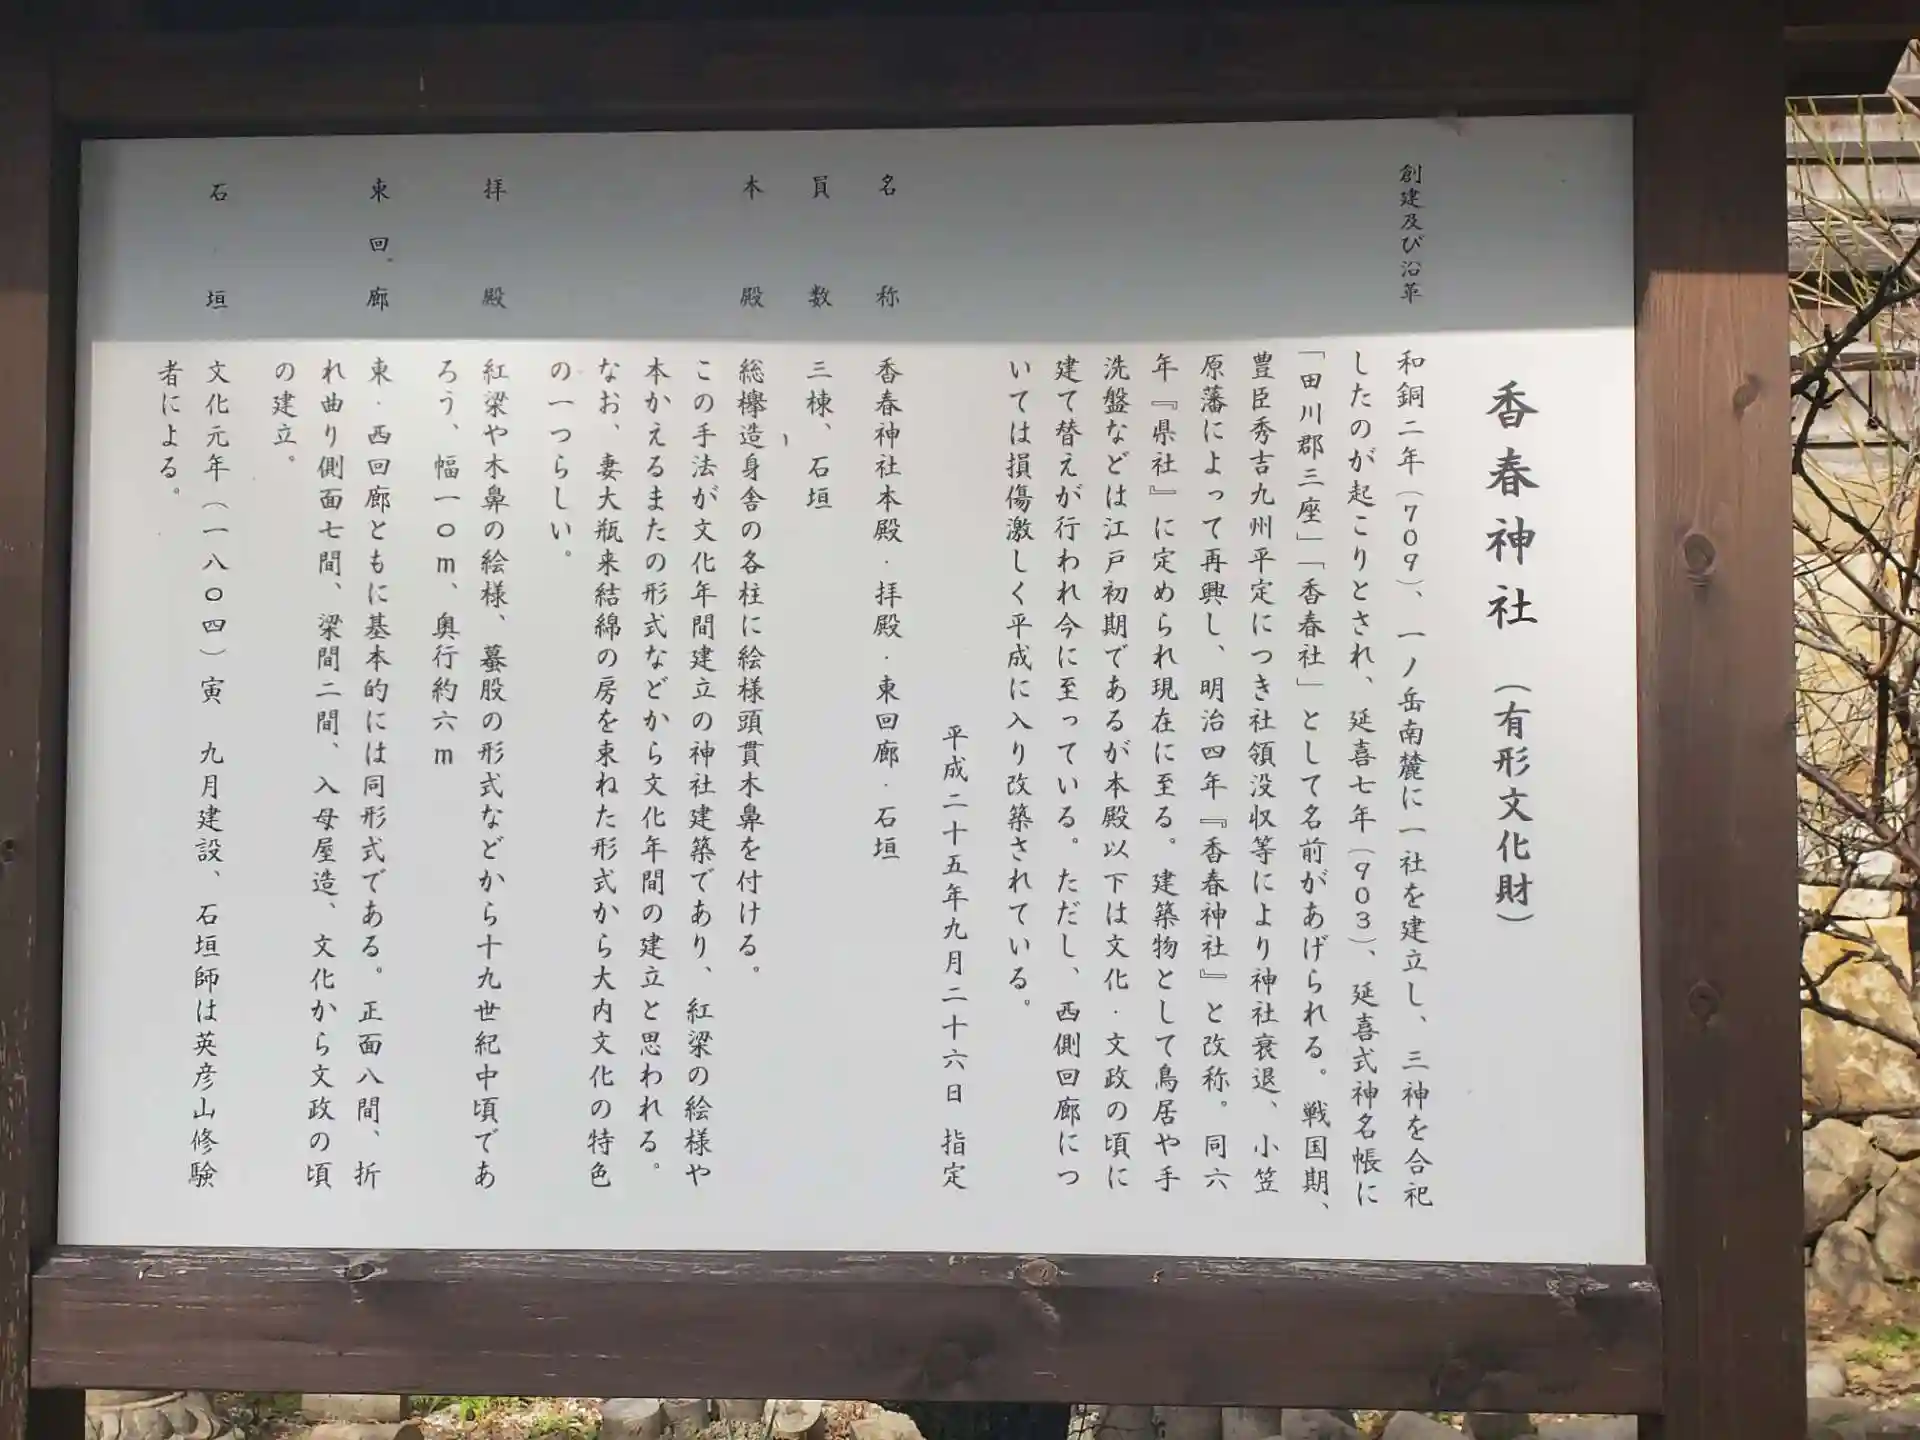 香春神社（有形文化財）
創建及び沿革
和銅二年（709）、一ノ岳南麓に一社を建立し、三神を合祀
したのが起こりとされ、延喜七年（903）、延喜式神名帳に
「田川郡三座」「香春社」として名前があげられる。戦国期、
豊臣秀吉九州平定につき社領没収等により神社衰退、小笠
原藩によって再興し、明治四年『香春神社』と改称。同六
年『県社』に定められ現在に至る。建築物として鳥居や手
洗盤などは江戸初期であるが本殿以下は文化・文政の頃に
建て替えが行われ今に至っている。ただし、西側回廊につ
いては損傷激しく平成に入り改築されている。
平成二十五年九月二十六日 指定
名称 香春神社本殿・拝殿・東回廊・石垣
員数 三棟、石垣
本殿 総欅造身舎の各柱に絵様頭貫木鼻を付ける。
この手法が文化年間建立の神社建築であり、紅梁の絵様や
本かえるまたの形式などから文化年間の建立と思われる。
なお、妻大瓶来結綿の房を束ねた形式から大内文化の特色
の一つらしい。
拝殿 紅梁や木鼻の絵様、蟇股の形式などから十九世紀中頃であ
ろう、幅一〇m、奥行約六m
東回廊 東・西回廊ともに基本的には同形式である。正面八間、折
れ曲り側面七間、梁間二間、入母屋造、文化から文政の頃
の建立。
石垣 文化元年（一八〇四）寅 九月建設、石垣師は英彦山修験
者による。